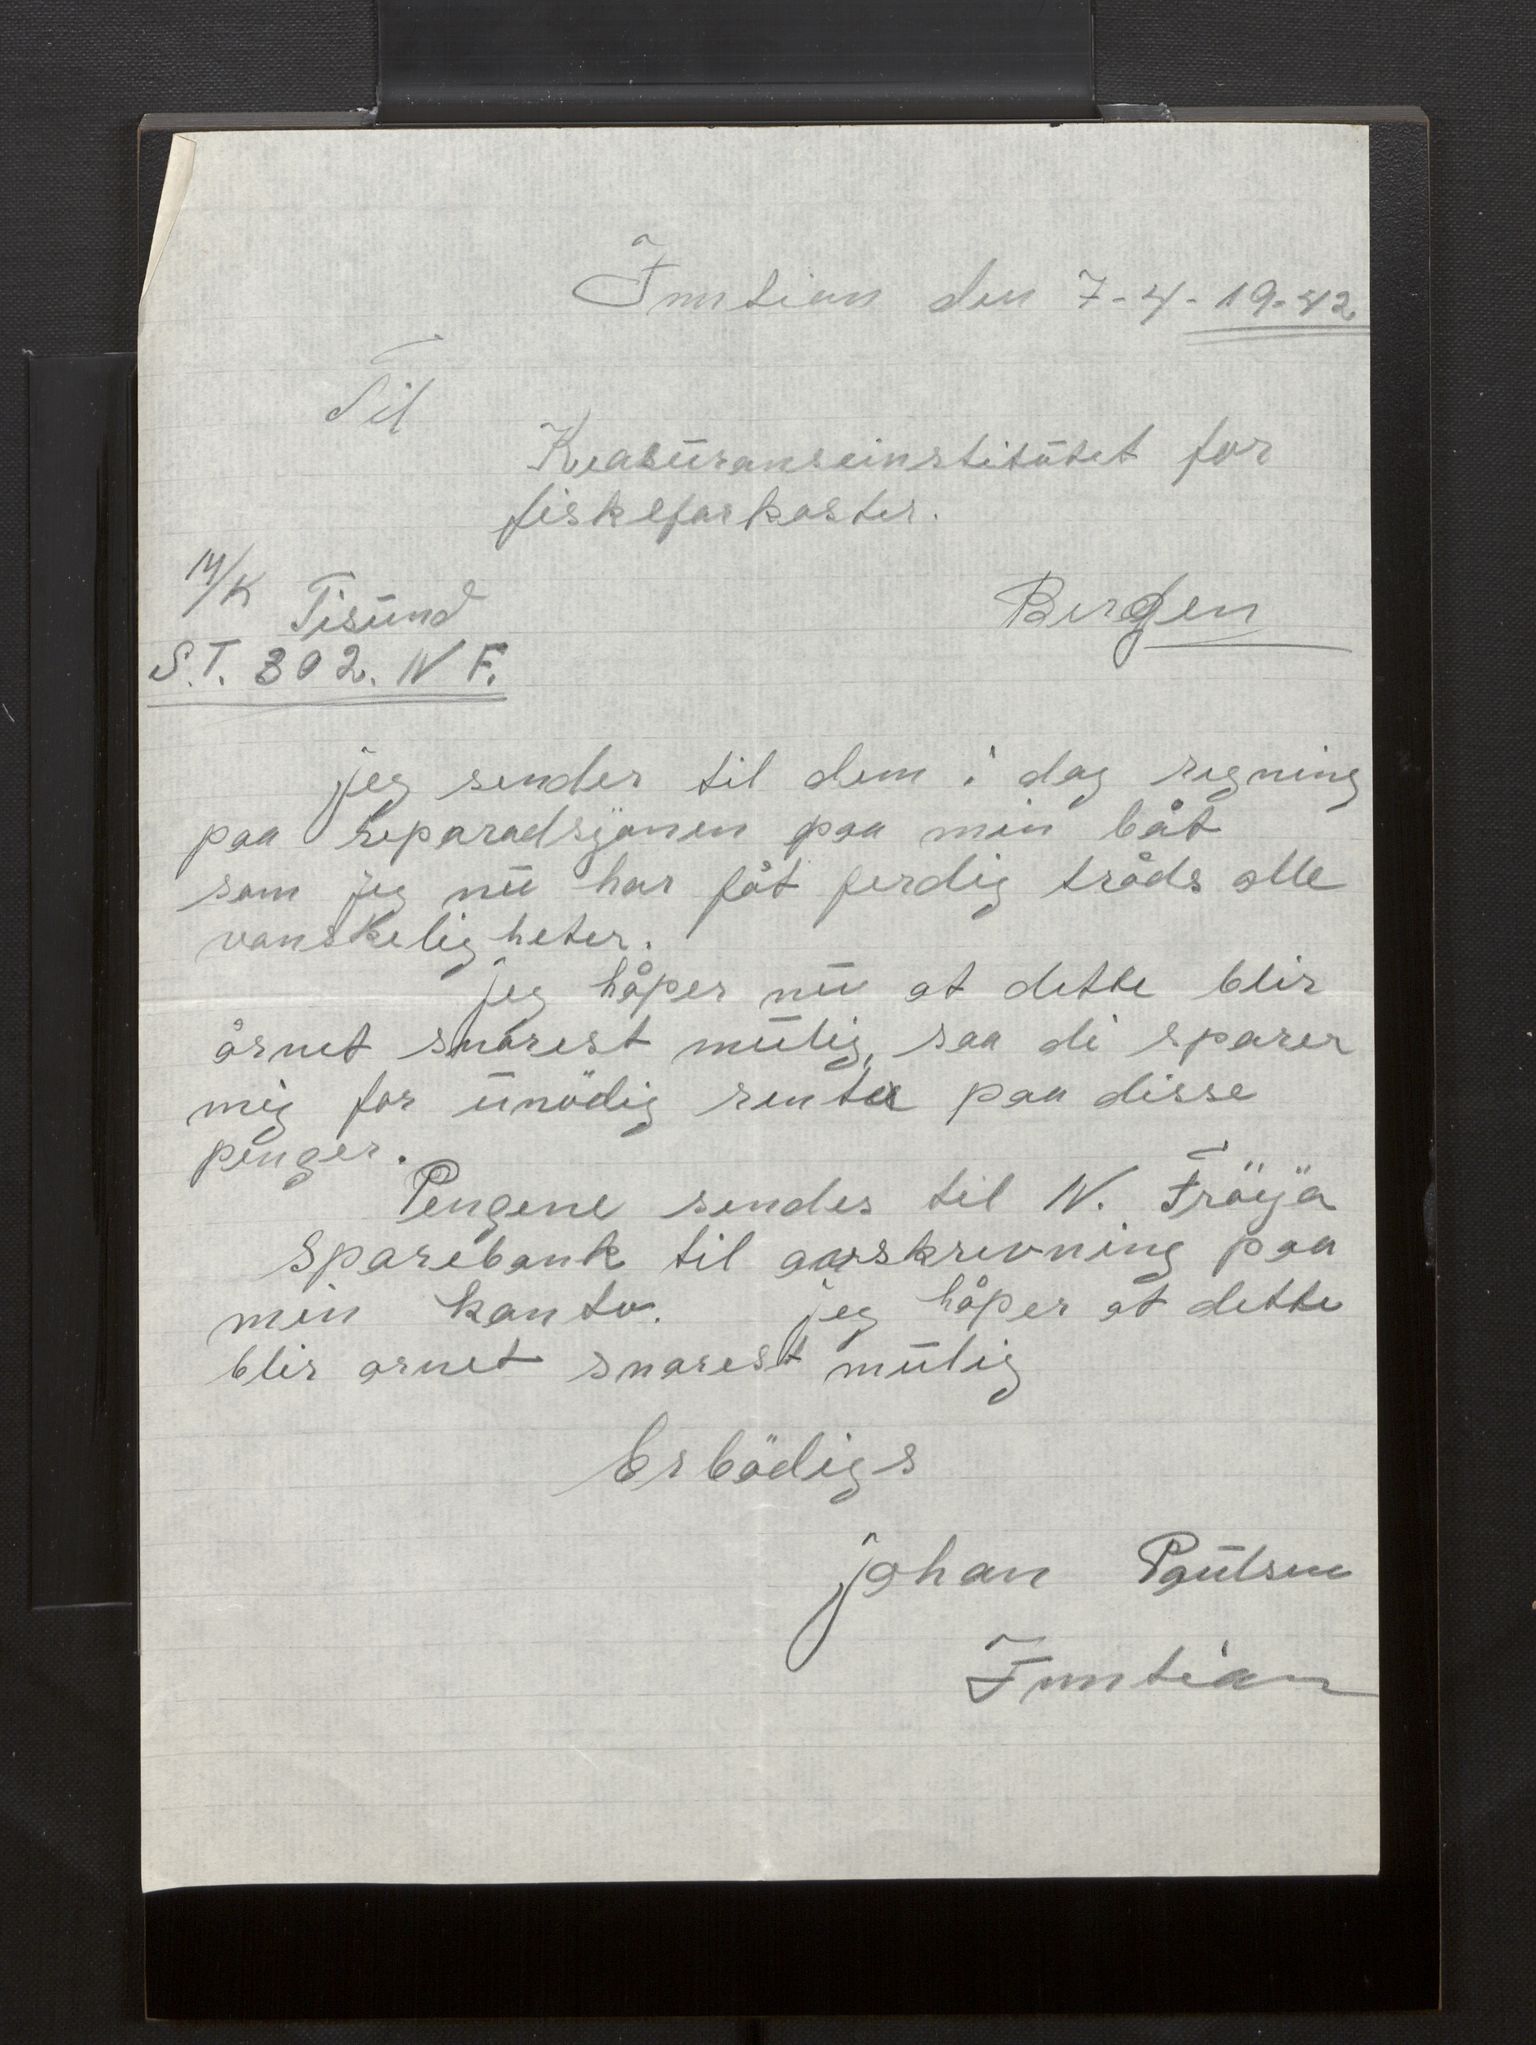 Inntian den 7-4-19-42
Til
Reasüranseinstitütet for
fiskefarkoster.
M/K Tisünd
Bergen
S.T. 302. N F.
jeg sender til dem i dag regning
paa reparadsjonen paa min båt
som jeg nü har fåt ferdig tråds alle
vanskeligheter.
jeg håper nü at dette blir
årnet snarest mülig, saa di sparer
mig for ünödig renter paa disse
penger.
Pengene sendes til N. Fröya
Sparebank til avskrevning paa
min konto. jeg håper at dette
blir arnet snarest mülig
Erbödigs
johan Paülsen
Inntian